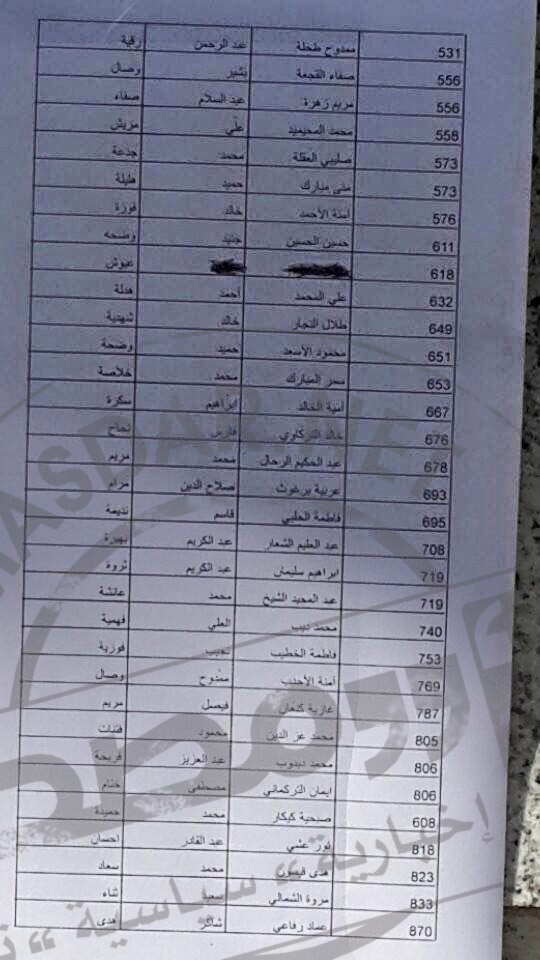 531 ممدوح طحلة عبد الرحمن رقية
556 صفاء القجعة بشير وصال
556 مريم زهرة عبد السلام صفاء
558 محمد المحيميد علي مريش
573 صليبي العقلة محمد جدعة
573 منى مبارك حميد هليلة
576 امنة الأحمد خالد فوزة
611 حسين الحسين جنيد وضحه
618 عيوش
632 علي المحمد احمد هدلة
649 طلال النجار خالد شهدية
651 محمود الأسعد حميد وضحة
653 سمر المبارك محمد خلاصة
667 امية الخالد ابراهيم سكرة
676 خالد التركاوي فارس نجاح
678 عبد الحكيم الرحال محمد مريم
693 عربية برغوث صلاح الدين مرام
695 فاطمة الحلبي قاسم نديمة
708 عبد العليم الشعار عبد الكريم بهيرة
719 ابراهيم سليمان عبد الكريم ثروة
719 عبد المجيد الشيخ محمد عائشة
740 محمد ديب العلي فهمية
753 فاطمة الخطيب نجيب فوزية
769 آمنة الأحدب ممدوح وصال
787 غازية كنعان فيصل مريم
805 محمد عز الدين محمود فتنات
806 محمد ديدوب عبد العزيز فريحة
806 ايمان التركماني مصطفى ختام
608 صبحية كيكار محمد حميدة
818 نور عشي عبد القادر احسان
823 هدى قيسون محمد سعاد
833 مروة الشمالي سعيد ثناء
870 عماد رفاعي شاكر هدى
إخبارية سياسية